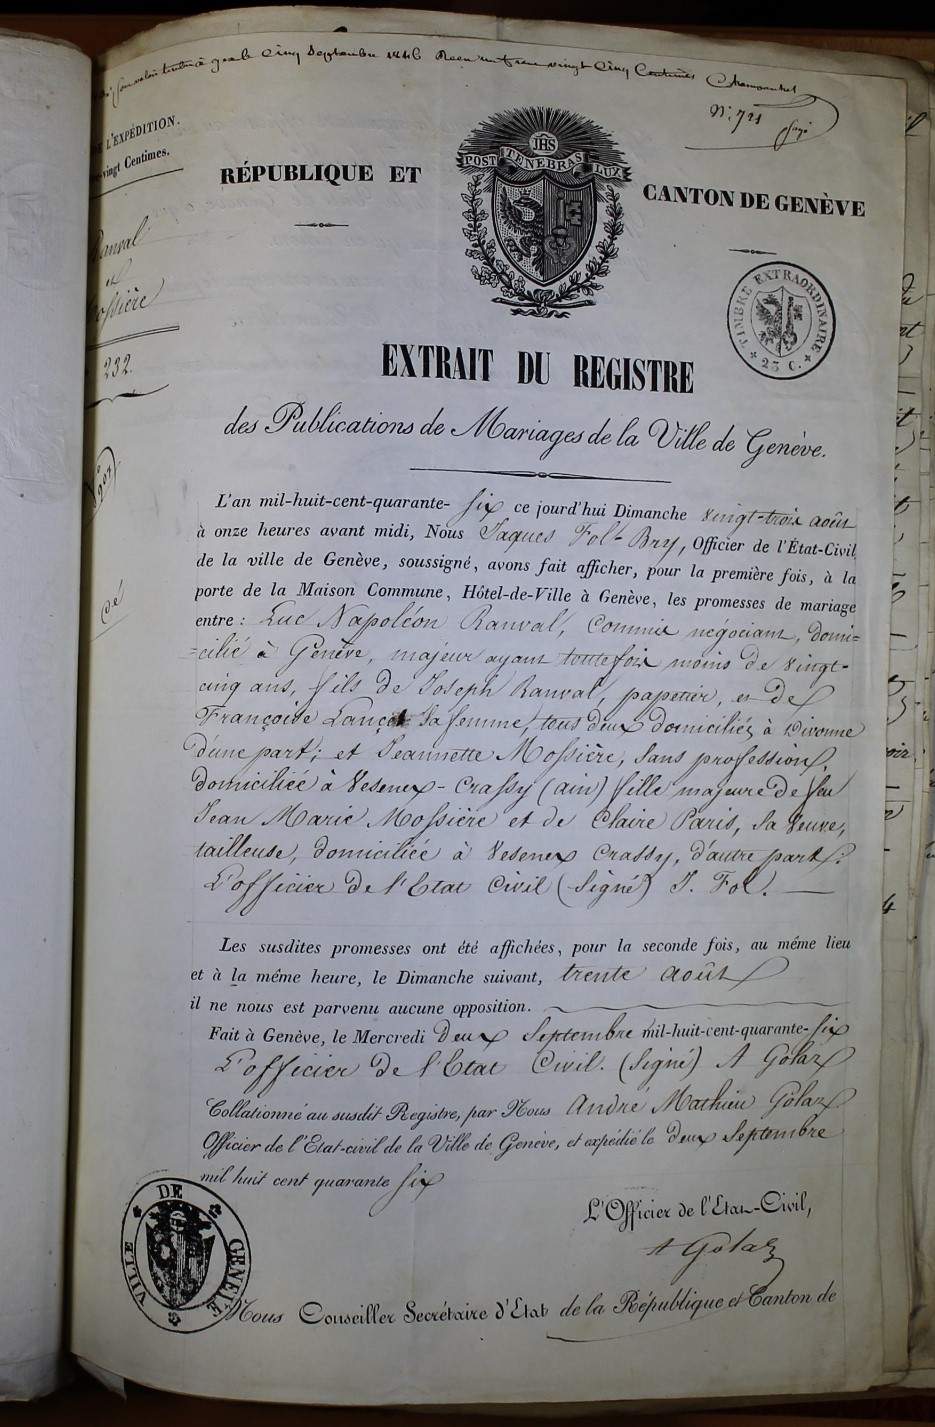 Cinq Septembre 1846 Reçu un franc vingt Cinq Centimes
N.º 721
L'EXPÉDITION.
vingt Centimes.
RÉPUBLIQUE ET
IHS
POST TENEBRAS LUX
CANTON DE GENÈVE
TIMBRE EXTRAORDINAIRE
25 C.
et
232.
EXTRAIT DU REGISTRE
des Publications de Mariages de la Ville de Genève.
L'an mil-huit-cent-quarante- six ce jourd'hui Dimanche vingt-trois août
à onze heures avant midi, Nous Jaques Fol-Bry, Officier de l'État-Civil
de la ville de Genève, soussigné, avons fait afficher, pour la première fois, à la
porte de la Maison Commune, Hôtel-de-Ville à Genève, les promesses de mariage
entre: Luc Napoléon Ranval, Commis négociant, domi=
=cilié à Genève, majeur ayant toutefois moins de vingt-
cinq ans, fils de Joseph Ranval, papetier, et de
Françoise Lançot sa femme, tous deux domiciliés à Divonne
d'une part; et Jeannette Mossière, sans profession,
domiciliée à Vesenex-Crassy (ain) fille majeure de feu
Jean Marie Mossière et de Claire Paris, sa veuve,
tailleuse, domiciliée à Vesenex Crassy, d'autre part:
L'officier de l'Etat Civil (Signé) J. Fol.
Les susdites promesses ont été affichées, pour la seconde fois, au même lieu
et à la même heure, le Dimanche suivant, trente août
il ne nous est parvenu aucune opposition.
Fait à Genève, le Mercredi deux Septembre mil-huit-cent-quarante-six
L'officier de l'Etat Civil. (Signé) A Golaz
Collationné au susdit Registre, par Nous André Mathieu Golaz
Officier de l'Etat-civil de la Ville de Genève, et expédié le deux Septembre
mil huit cent quarante six
L'Officier de l'Etat-Civil,
A Golaz
VILLE DE GENÈVE
Nous Conseiller Secrétaire d'Etat de la République et Canton de